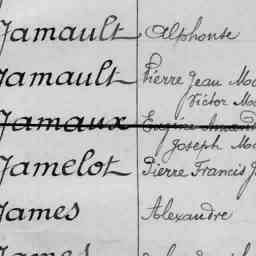 Jamault Alphonse
Jamault Pierre Jean
Victor
Jamaux Eugène
Joseph
Jamelot Pierre Francis
James Alexandre
James